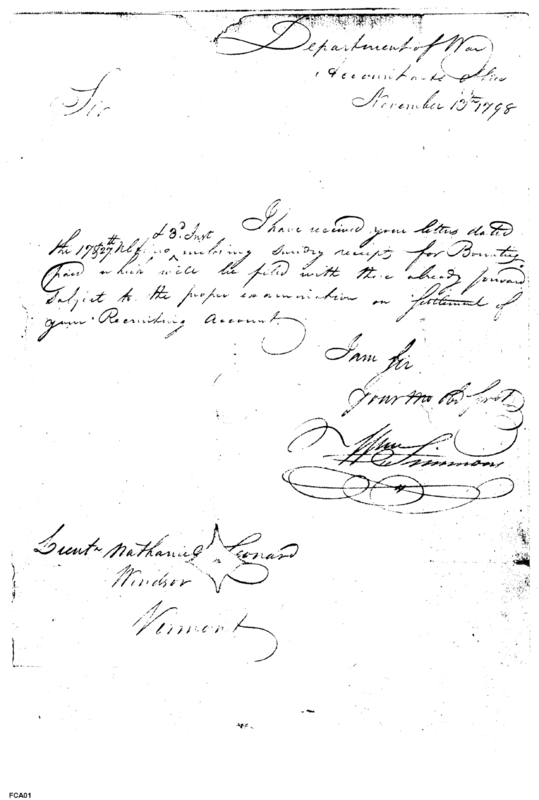 Department of War
Accountants Office
November 13th 1798
Sir
I have received your letters dated
& 3d Inst
the 17 & 27th Ulto inclosing sundry receipts for Bounties
paid which will be filed with those already forward
subject to the proper examination on Settlement of
your Recruiting Account.
I am Sir
Your Mo Obd Servt
Wm Simmons
Lieut Nathaniel Leonard
Windsor
Vermont
FCA01